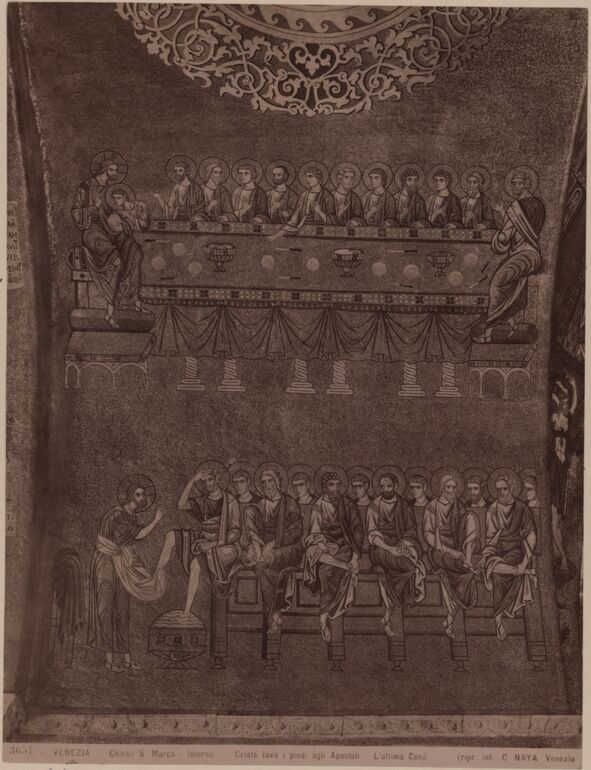 3657 VENEZIA - Chiesa S. Marco - Interno Cristo lava i piedi agli Apostoli - L'ultima Cena (ripr. int. C. NAYA Venezia